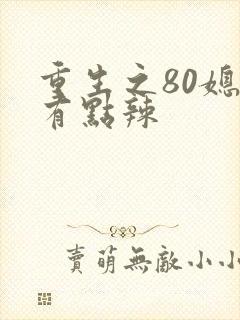 重生之80媳
有點辣
賣萌無敵小小